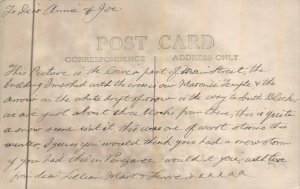 To Dear Annie & Joe.
POST CARD
CORRESPONDENCE ADDRESS ONLY
"This Picture is the lower part of Main Street, the
building I marked with the cross is our Masonic Temple & the
arrow on the white drift of snow is the way to South Block,
we are just about three blocks from there, this is quite
a snow scene isn't it, this was one of worst storms this
winter, I guess you would think you had a snow storm
if you had this in England wouldn't you, with love
from dear Lillian, Mart & xxxxxx